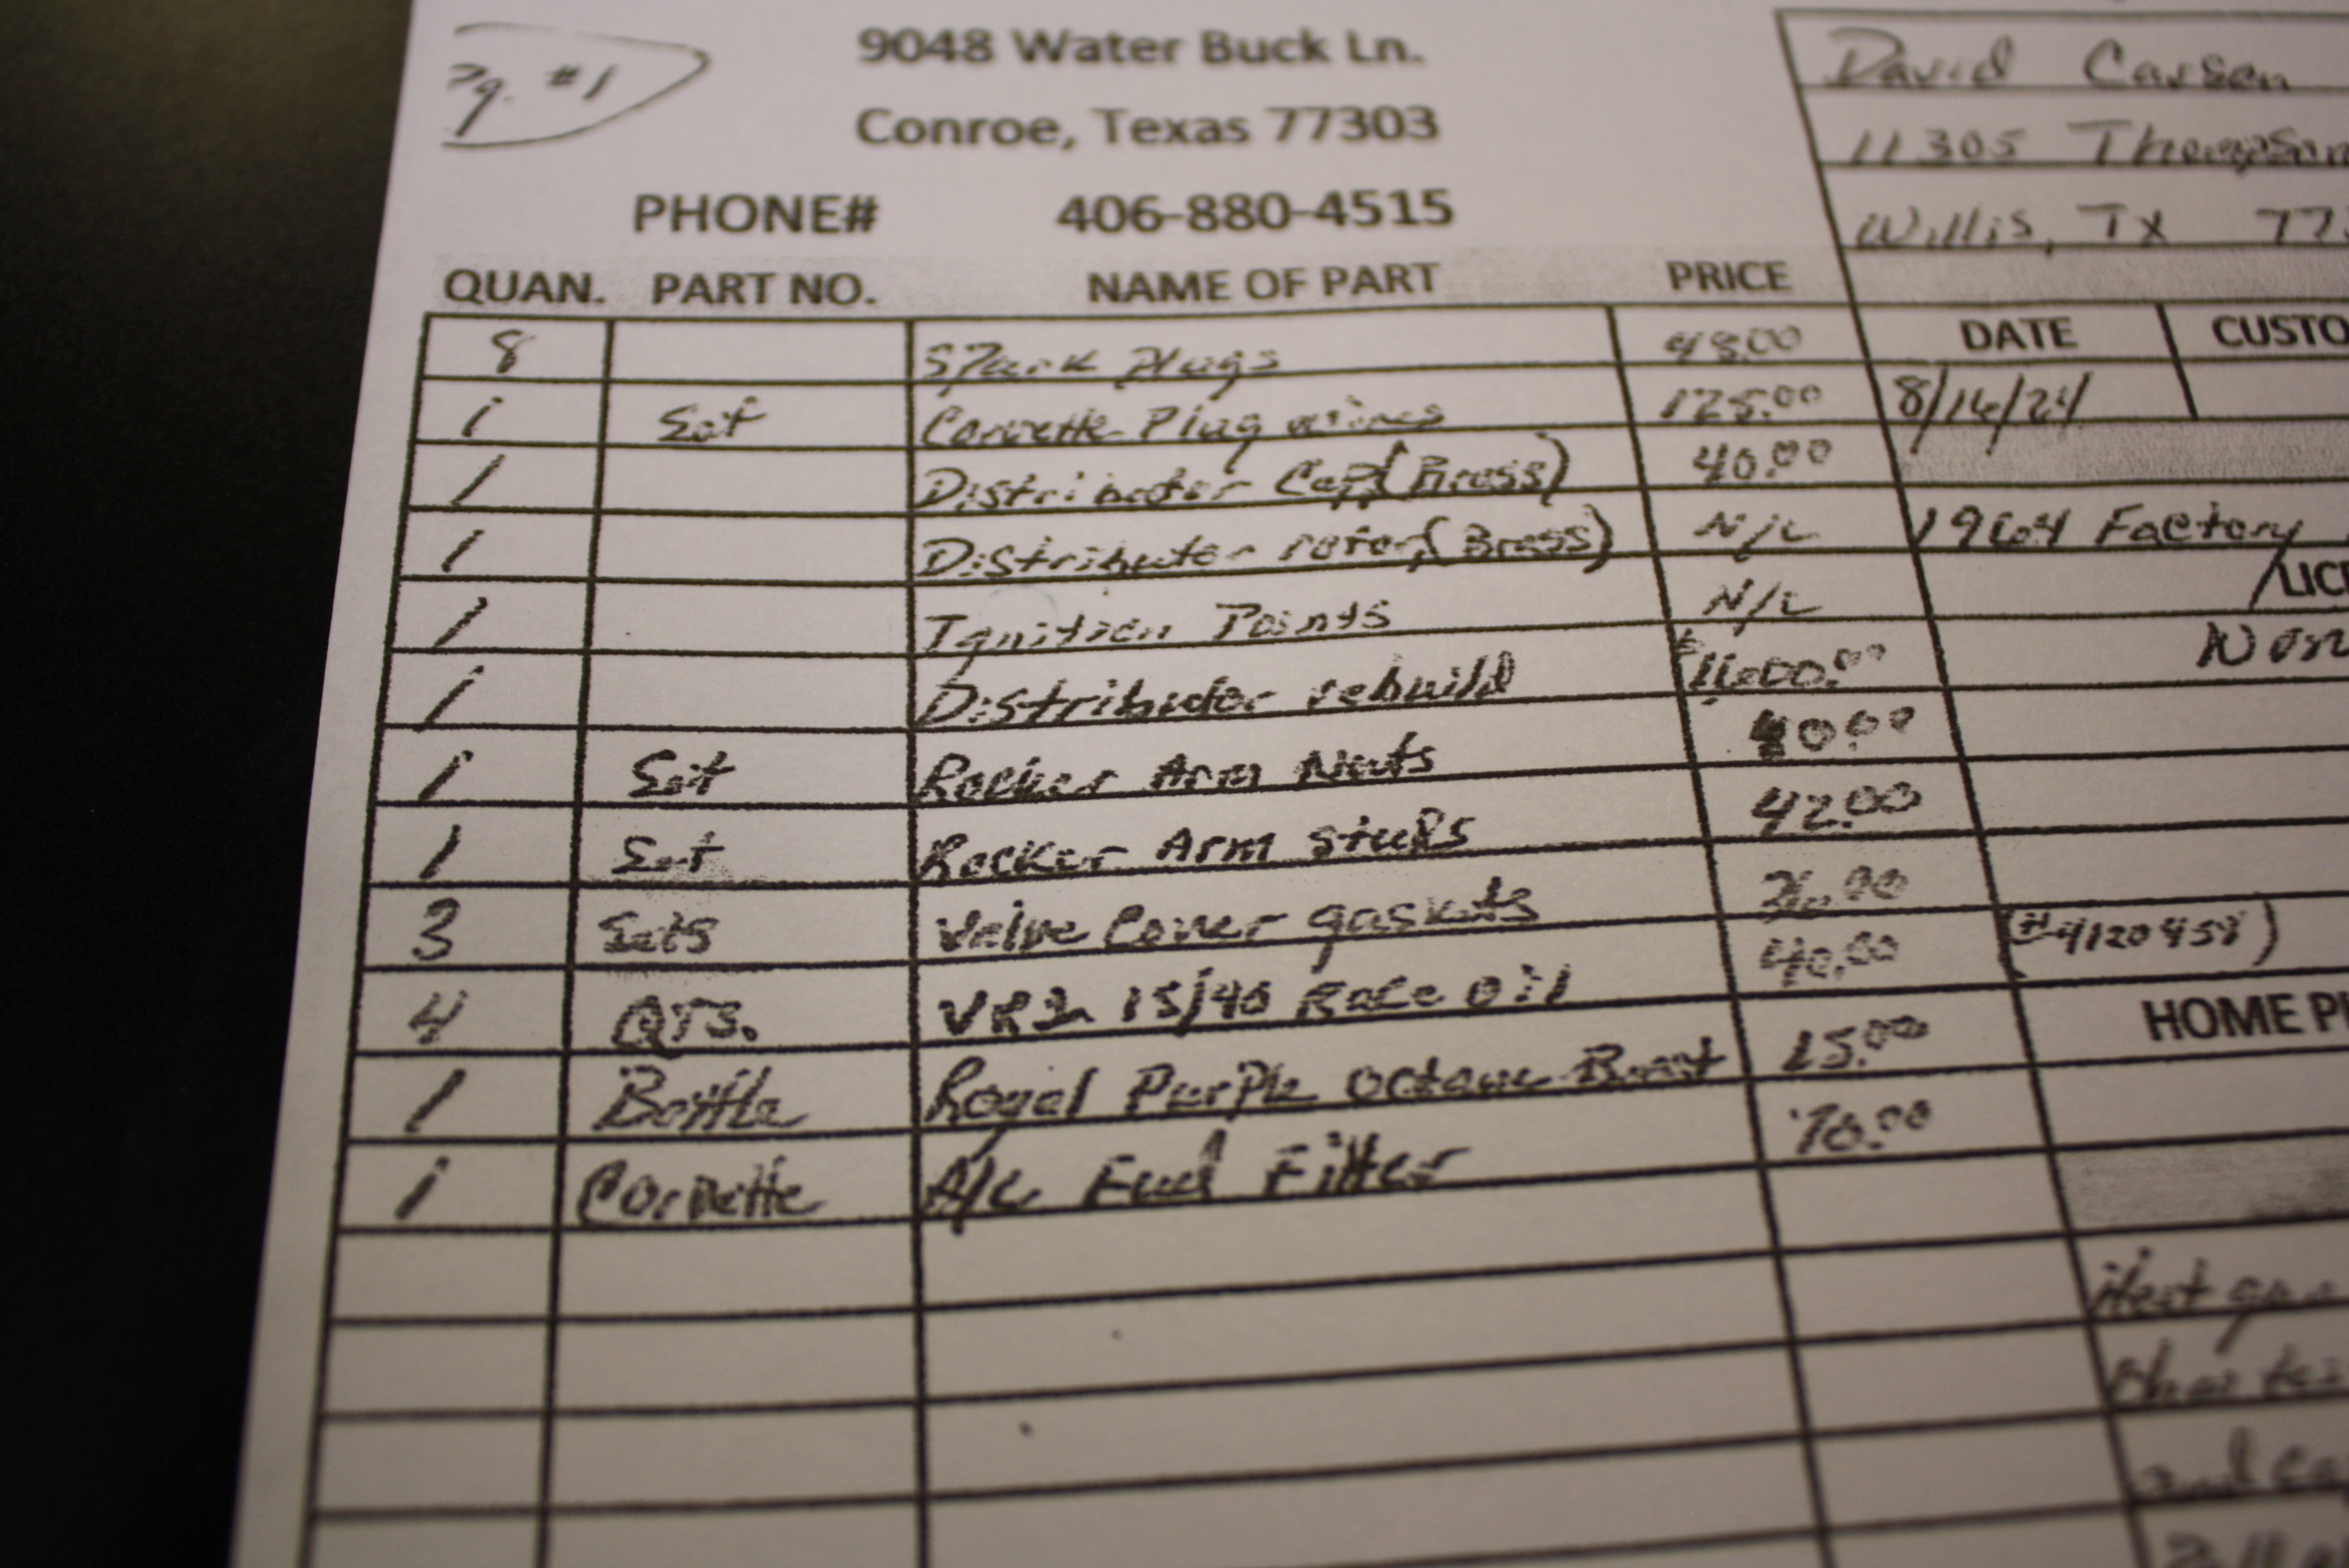 Pg. #1
9048 Water Buck Ln.
Conroe, Texas 77303
PHONE# 406-880-4515
David Carson
11305 Thompson
Willis, Tx 77
QUAN. PART NO. NAME OF PART PRICE
8 Spark Plugs 48.00
1 Set Corvette Plug wires 125.00
1 Distributor Cap (Brass) 40.00
1 Distributor rotor (Brass) N/C
1 Ignition Points N/C
1 Distributor rebuild
1 Set Rocker Arm Nuts
1 Set Rocker Arm studs 42.00
3 Sets Valve Cover gaskets
4 QTS. VR1 15/40 Race Oil 40.00
1 Bottle Royal Purple Octane Boost 15.00
1 Corvette A/C Fuel Filter 70.00
DATE CUSTO
8/16/24
1964 Factory
/LIC
Non
(#4120458)
HOME P
Heat
and